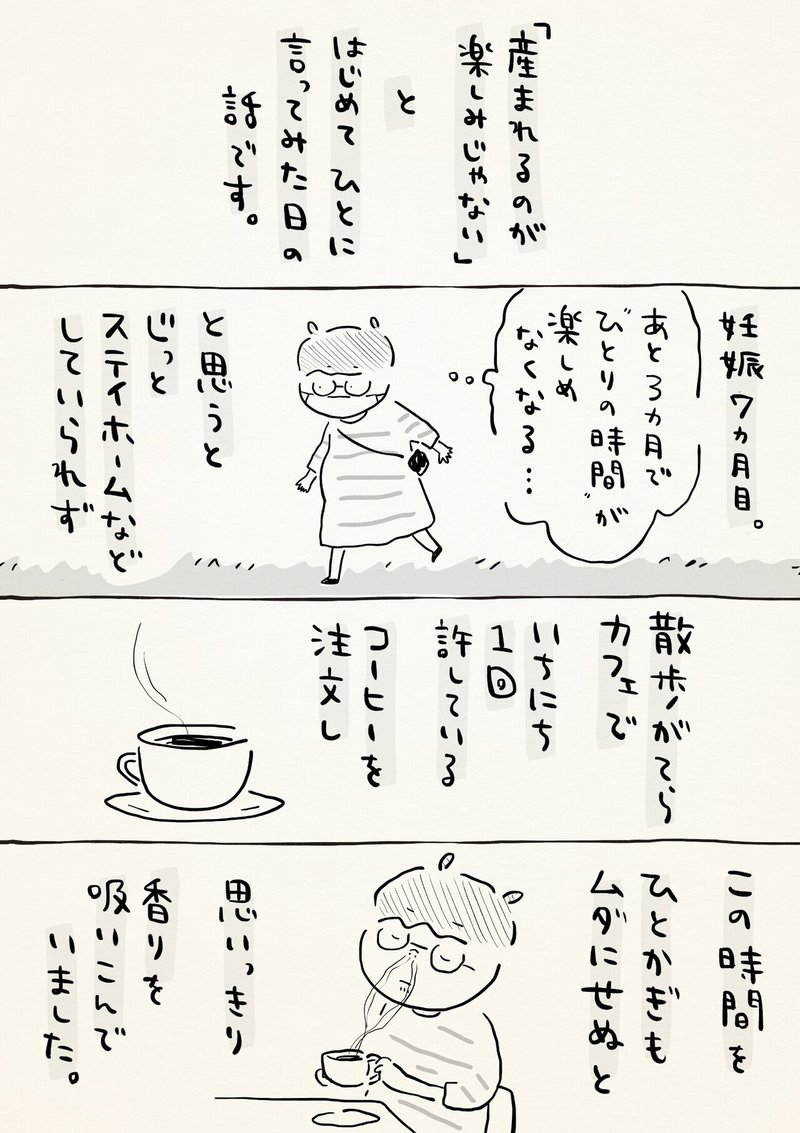 「産まれるのが
楽しみじゃない」
と
はじめて ひとに
言ってみた日の
話です。
妊娠7ヵ月目。
あと3ヵ月で
"ひとりの時間"が
楽しめ
なくなる…
と思うと
じっと
ステイホームなど
していられず
散歩がてら
カフェで
いちにち
1回
許している
コーヒーを
注文し
この時間を
ひとかぎも
ムダにせぬと
思いっきり
香りを
吸いこんで
いました。